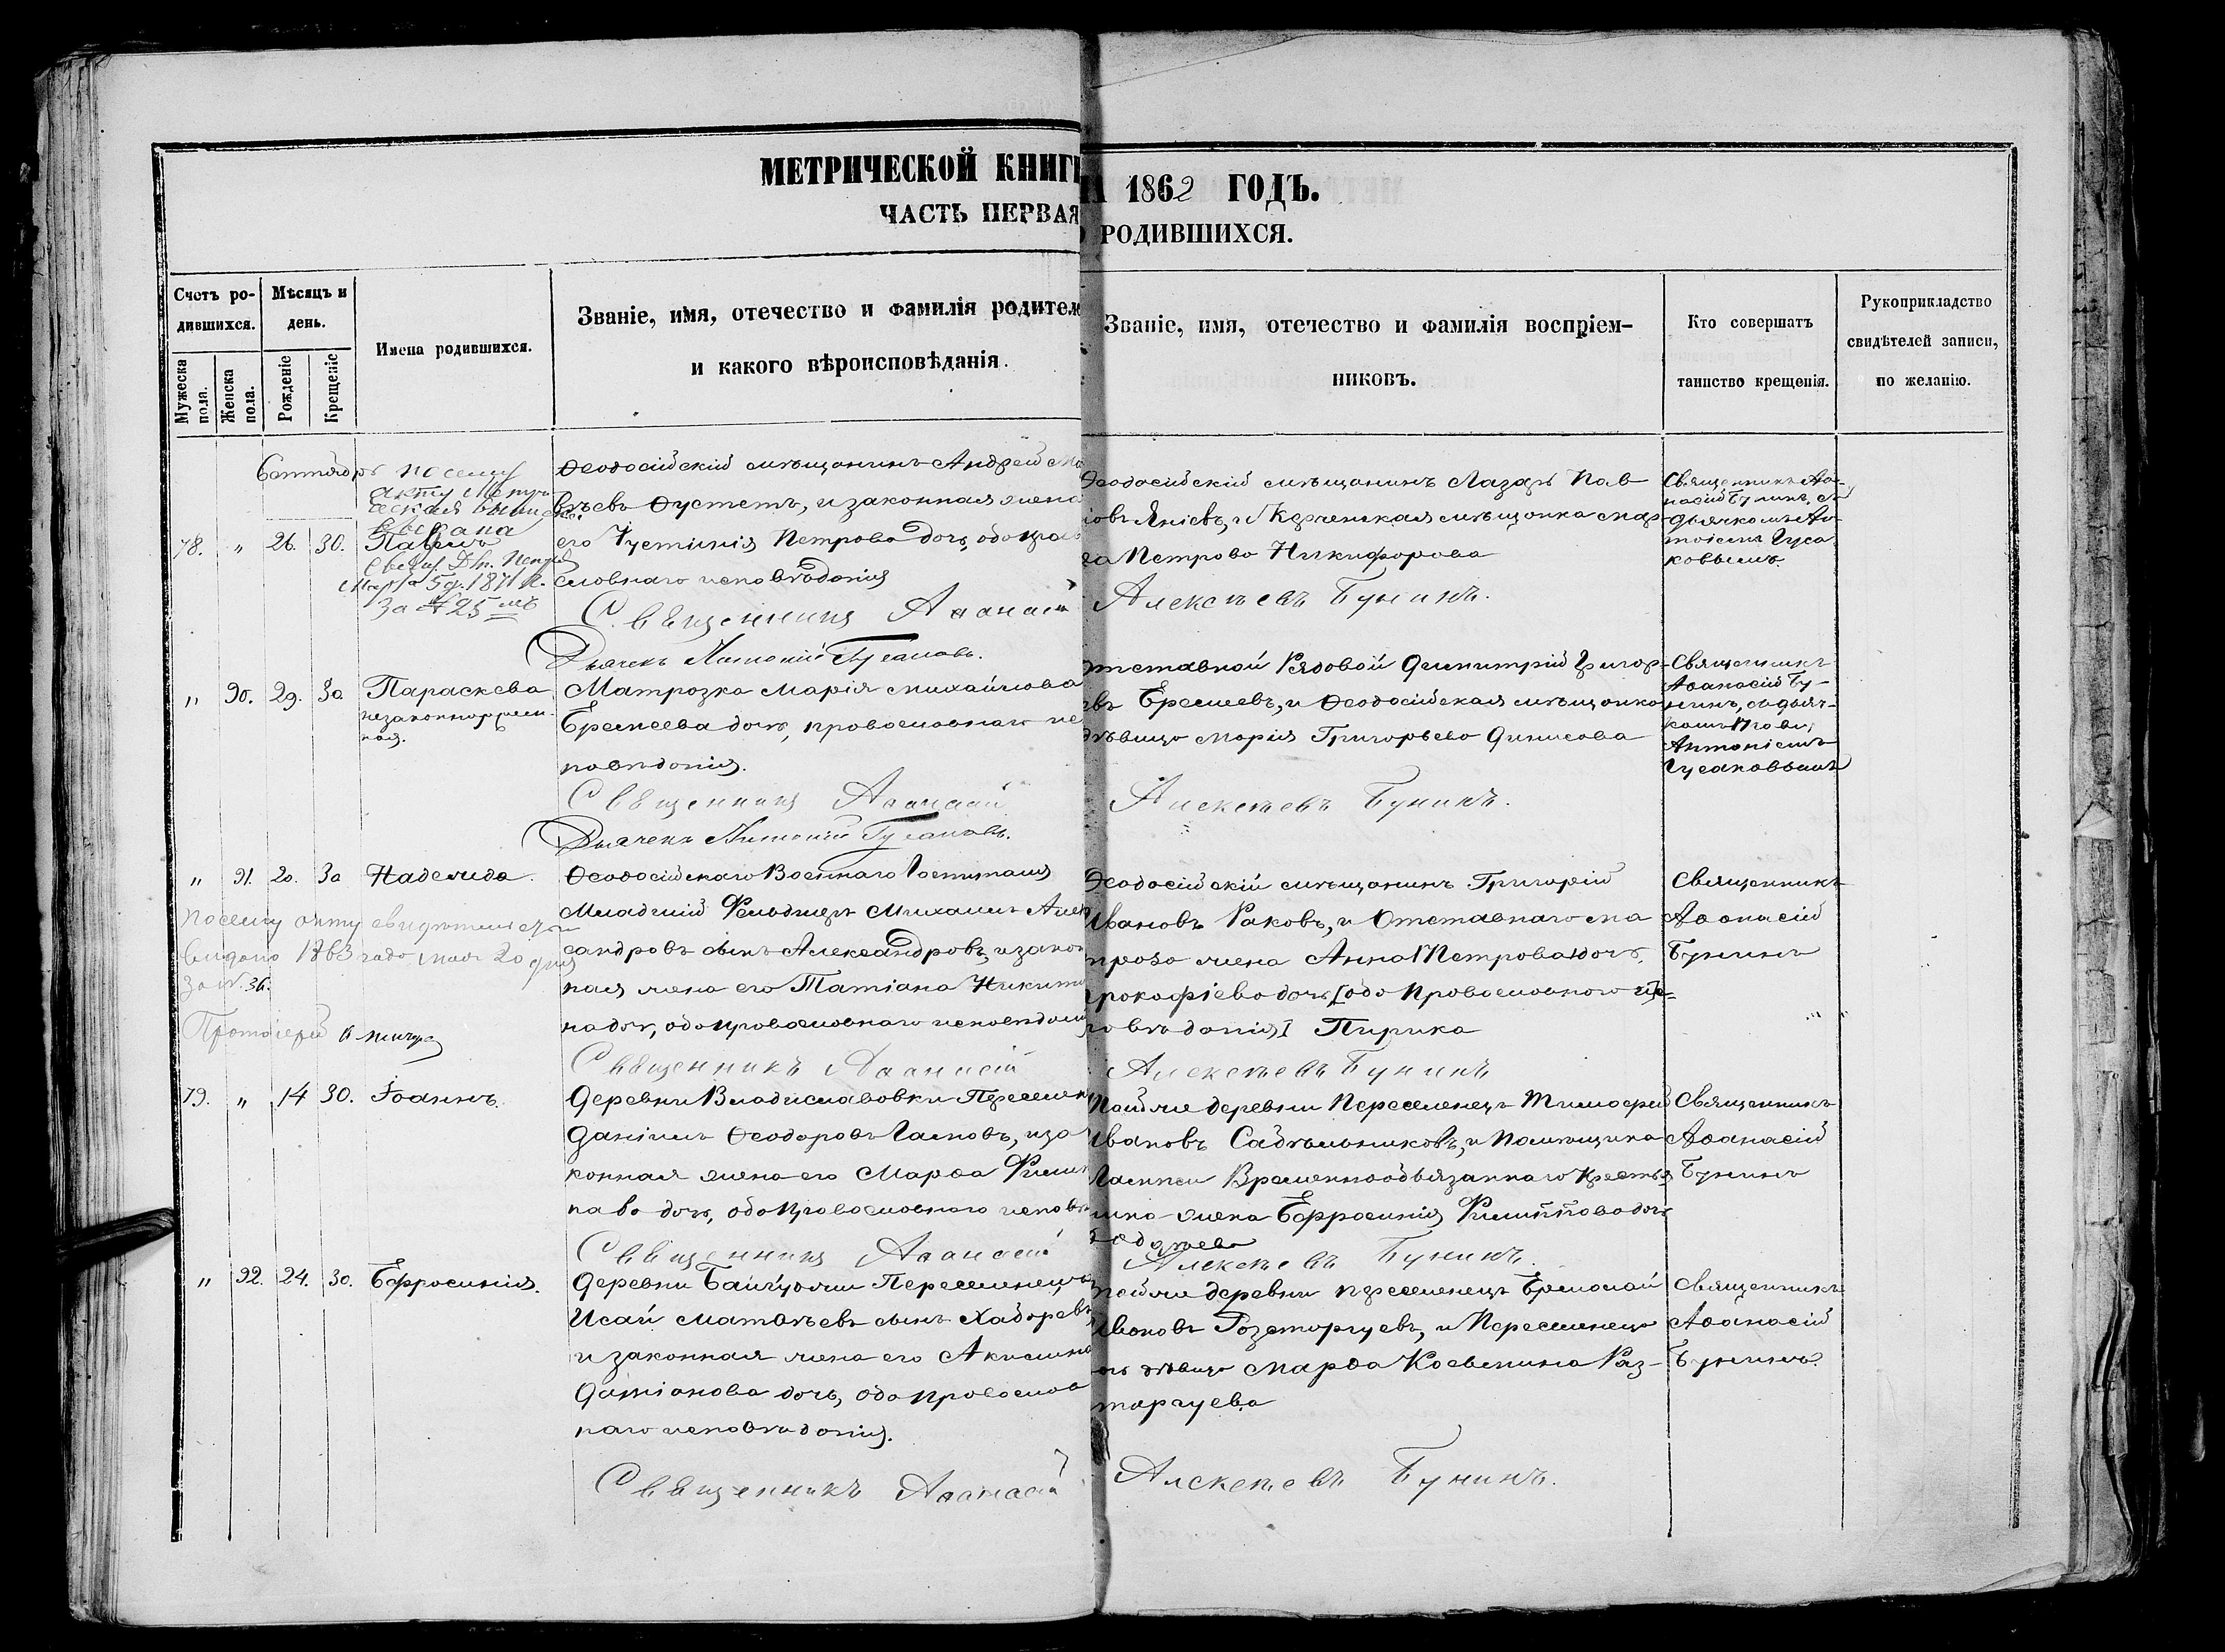 МЕТРИЧЕСКОЙ КНИГИ
1862 ГОДЪ.
ЧАСТЬ ПЕРВАЯ
РОДИВШИХСЯ.
Счетъ ро-
дившихся.
Мужеска
пола.
Женска
пола.
Мѣсяцъ и
день.
Рожденіе
Крещеніе
Имена родившихся.
Званіе, имя, отечество и фамилія родител
и какого вѣроисповѣданія.
Званіе, имя, отечество и фамилія воспріем-
никовъ.
Кто совершатъ
таинство крещенія.
Рукоприкладство
свидѣтелей записи,
по желанію.
Сентябрь
по сему
акту Метри-
ческая
выдана
78. " 26. 30. Павелъ
Марта 5 д. 1871 г.
за № 25
Ѳеодосійскій мѣщанинъ Андрей Ма
вѣевъ Фустетъ, и законная жена
его Іустинія Петрова дочь, оба право
славнаго исповѣданія
Священникъ Аѳанасій
Дьячекъ Антоній Гусаковъ.
Ѳеодосійскій мѣщанинъ Лазарь Пав
ловъ Яніевъ, и Керченская мѣщанка Мар
ѳа Петрова Никифорова
Алексѣевъ Бунинъ.
Священникъ Аѳа-
насій Бунинъ, съ
дьячкомъ Ан-
тоніемъ Гуса
ковымъ.
" 90. 29. 30 Параскева
незаконнорожден-
ная.
Матрозка Марія Михайлова
Еремеева дочь, православнаго ис
повѣданія.
Священникъ Аѳанасій
Дьячекъ Антоній Гусаковъ.
Отставной Рядовой Димитрій Григор
евъ Еремеевъ, и Ѳеодосійская мѣщанка
дѣвица Марія Григорьева Динисова
Алексѣевъ Бунинъ.
Священникъ
Аѳанасій Бу-
нинъ, съ дьяч-
комъ
Антоніемъ
Гусаковымъ
" 91. 20. 30 Надежда.
По сему акту свидѣтельство
выдано 1863 года мая 20 дня
за №. 36.
Протоіерей
Ѳеодосійскаго Военнаго Госпиталя
Младшій Фельдшеръ Михаилъ Алек
сандровъ сынъ Александровъ, и закон
ная жена его Татіана Никити
на дочь, оба православнаго исповѣданія
Священникъ Аѳанасій
Ѳеодосійскій мѣщанинъ Григорій
Ивановъ Раковъ, и Отставнаго Ма
троза жена Анна Петрова дочь
Прокофіева дочь [оба Православнаго ис-
повѣданія] Пирика
Алексѣевъ Бунинъ
Священникъ
Аѳанасій
Бунинъ
79. " 14 30. Іоаннъ.
Деревни Владиславовки Переселен
Даніилъ Ѳеодоровъ Гасновъ, и за
конная жена его Марѳа Филип
пова дочь, оба православнаго исповѣ
Священникъ Аѳанасій
Той же деревни Переселенецъ Тимофей
Ивановъ Садѣльниковъ, и Помѣщика
Временнообязаннаго крестья
нина жена Ефросинія Филиппова дочь
Алексѣевъ Бунинъ.
Священникъ
Аѳанасій
Бунинъ
" 92. 24. 30. Ефросинія.
Деревни Переселенецъ
Исай Матвѣевъ сынъ Хабаревъ,
и законная жена его Акилина
Даміанова дочь, оба православ
наго исповѣданія.
Священникъ Аѳанасій
Той же деревни переселенецъ Ермолай
Ивановъ Розторгуевъ, и Переселенца
дочь дѣвица Марѳа Косьмина Раз-
торгуева
Алексѣевъ Бунинъ.
Священникъ
Аѳанасій
Бунинъ.